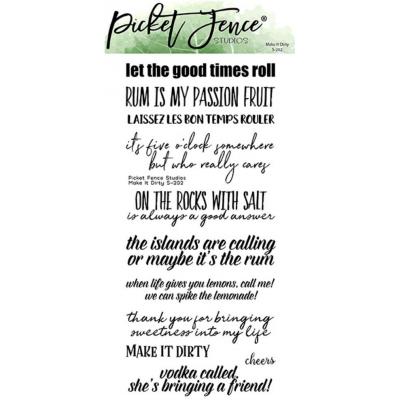 Picket Fence®
STUDIOS
Make It Dirty
S-202
let the good times roll
RUM IS MY PASSION FRUIT
LAISSEZ LES BON TEMPS ROULER
it's five o'clock somewhere
but who really cares
Picket Fence Studios
Make It Dirty S-202
ON THE ROCKS WITH SALT
is always a good answer
the islands are calling
or maybe it's the rum
when life gives you lemons, call me!
we can spike the lemonade!
thank you for bringing
sweetness into my life
MAKE IT DIRTY
cheers
vodka called,
she's bringing a friend!